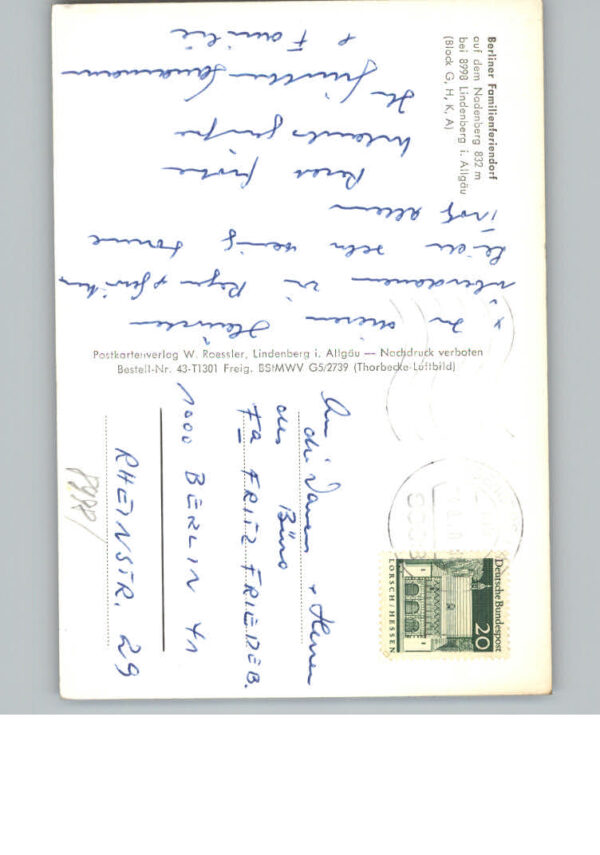 Berliner Familienferiendorf
auf dem Nadenberg 832 m
bei 8998 Lindenberg i. Allgäu
(Block G, H, K, A)
x In diesem Häuschen
überdauern wir Regen
leider sehr wenig Sonne
Trotz allem
Urlaubsgrüße
Ihr
& Familie
Postkartenverlag W. Roessler, Lindenberg i. Allgäu — Nachdruck verboten
Bestell-Nr. 43-T1301 Freig. BStMWV G5/2739 (Thorbecke-Luftbild)
An
die Damen + Herren
des Büro
Fa FRITZ FRIEDEB.
1000 BERLIN 41
RHEINSTR. 29
Deutsche Bundespost
20
LORSCH/HESSEN